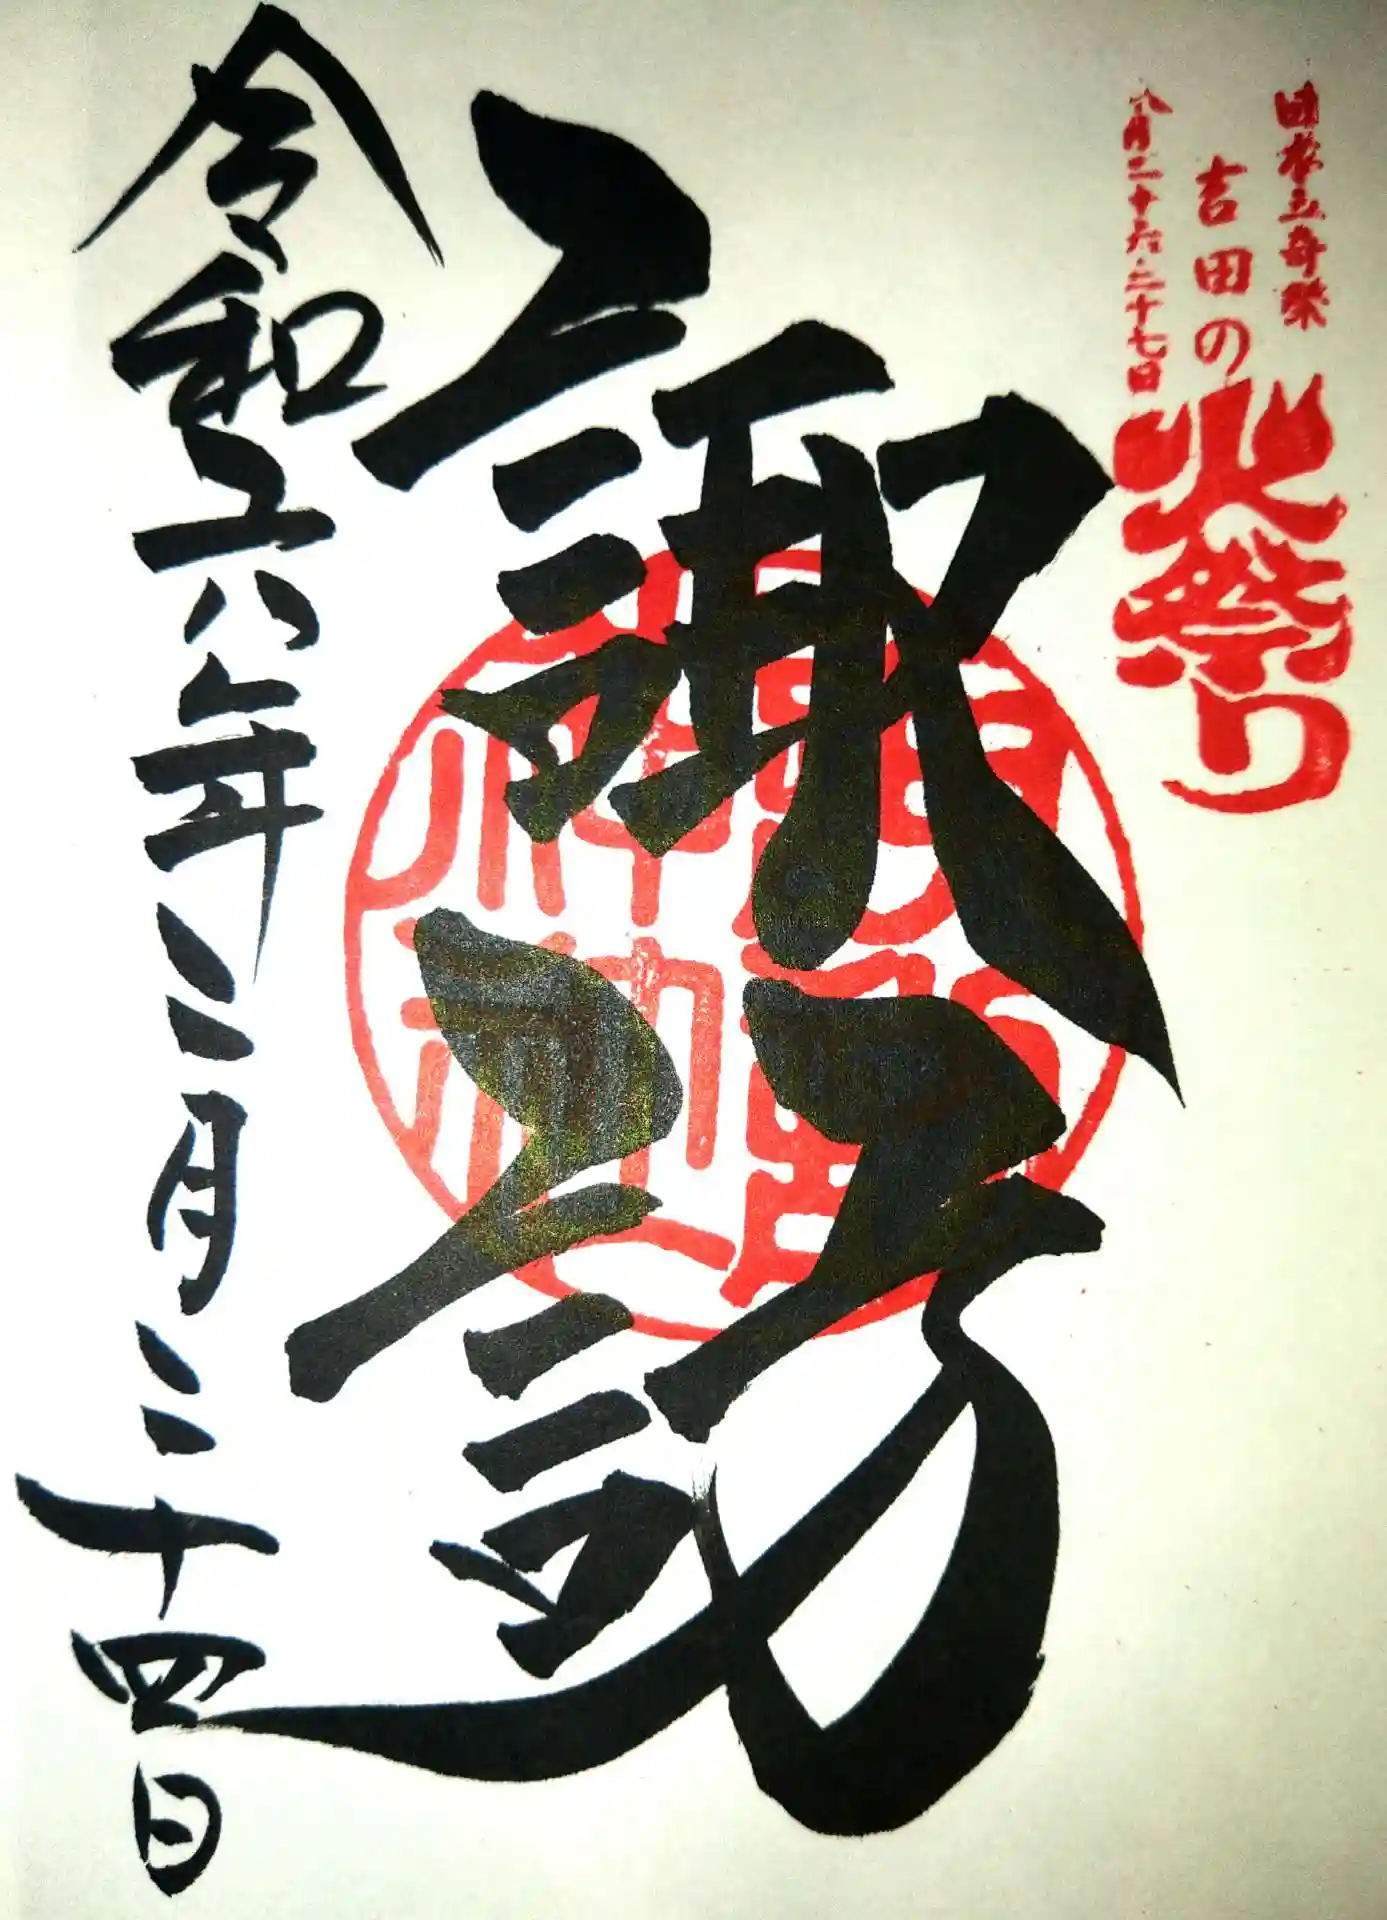 日本三奇祭
吉田の火祭り
八月二十六・二十七日
諏訪
令和六年二月二十四日